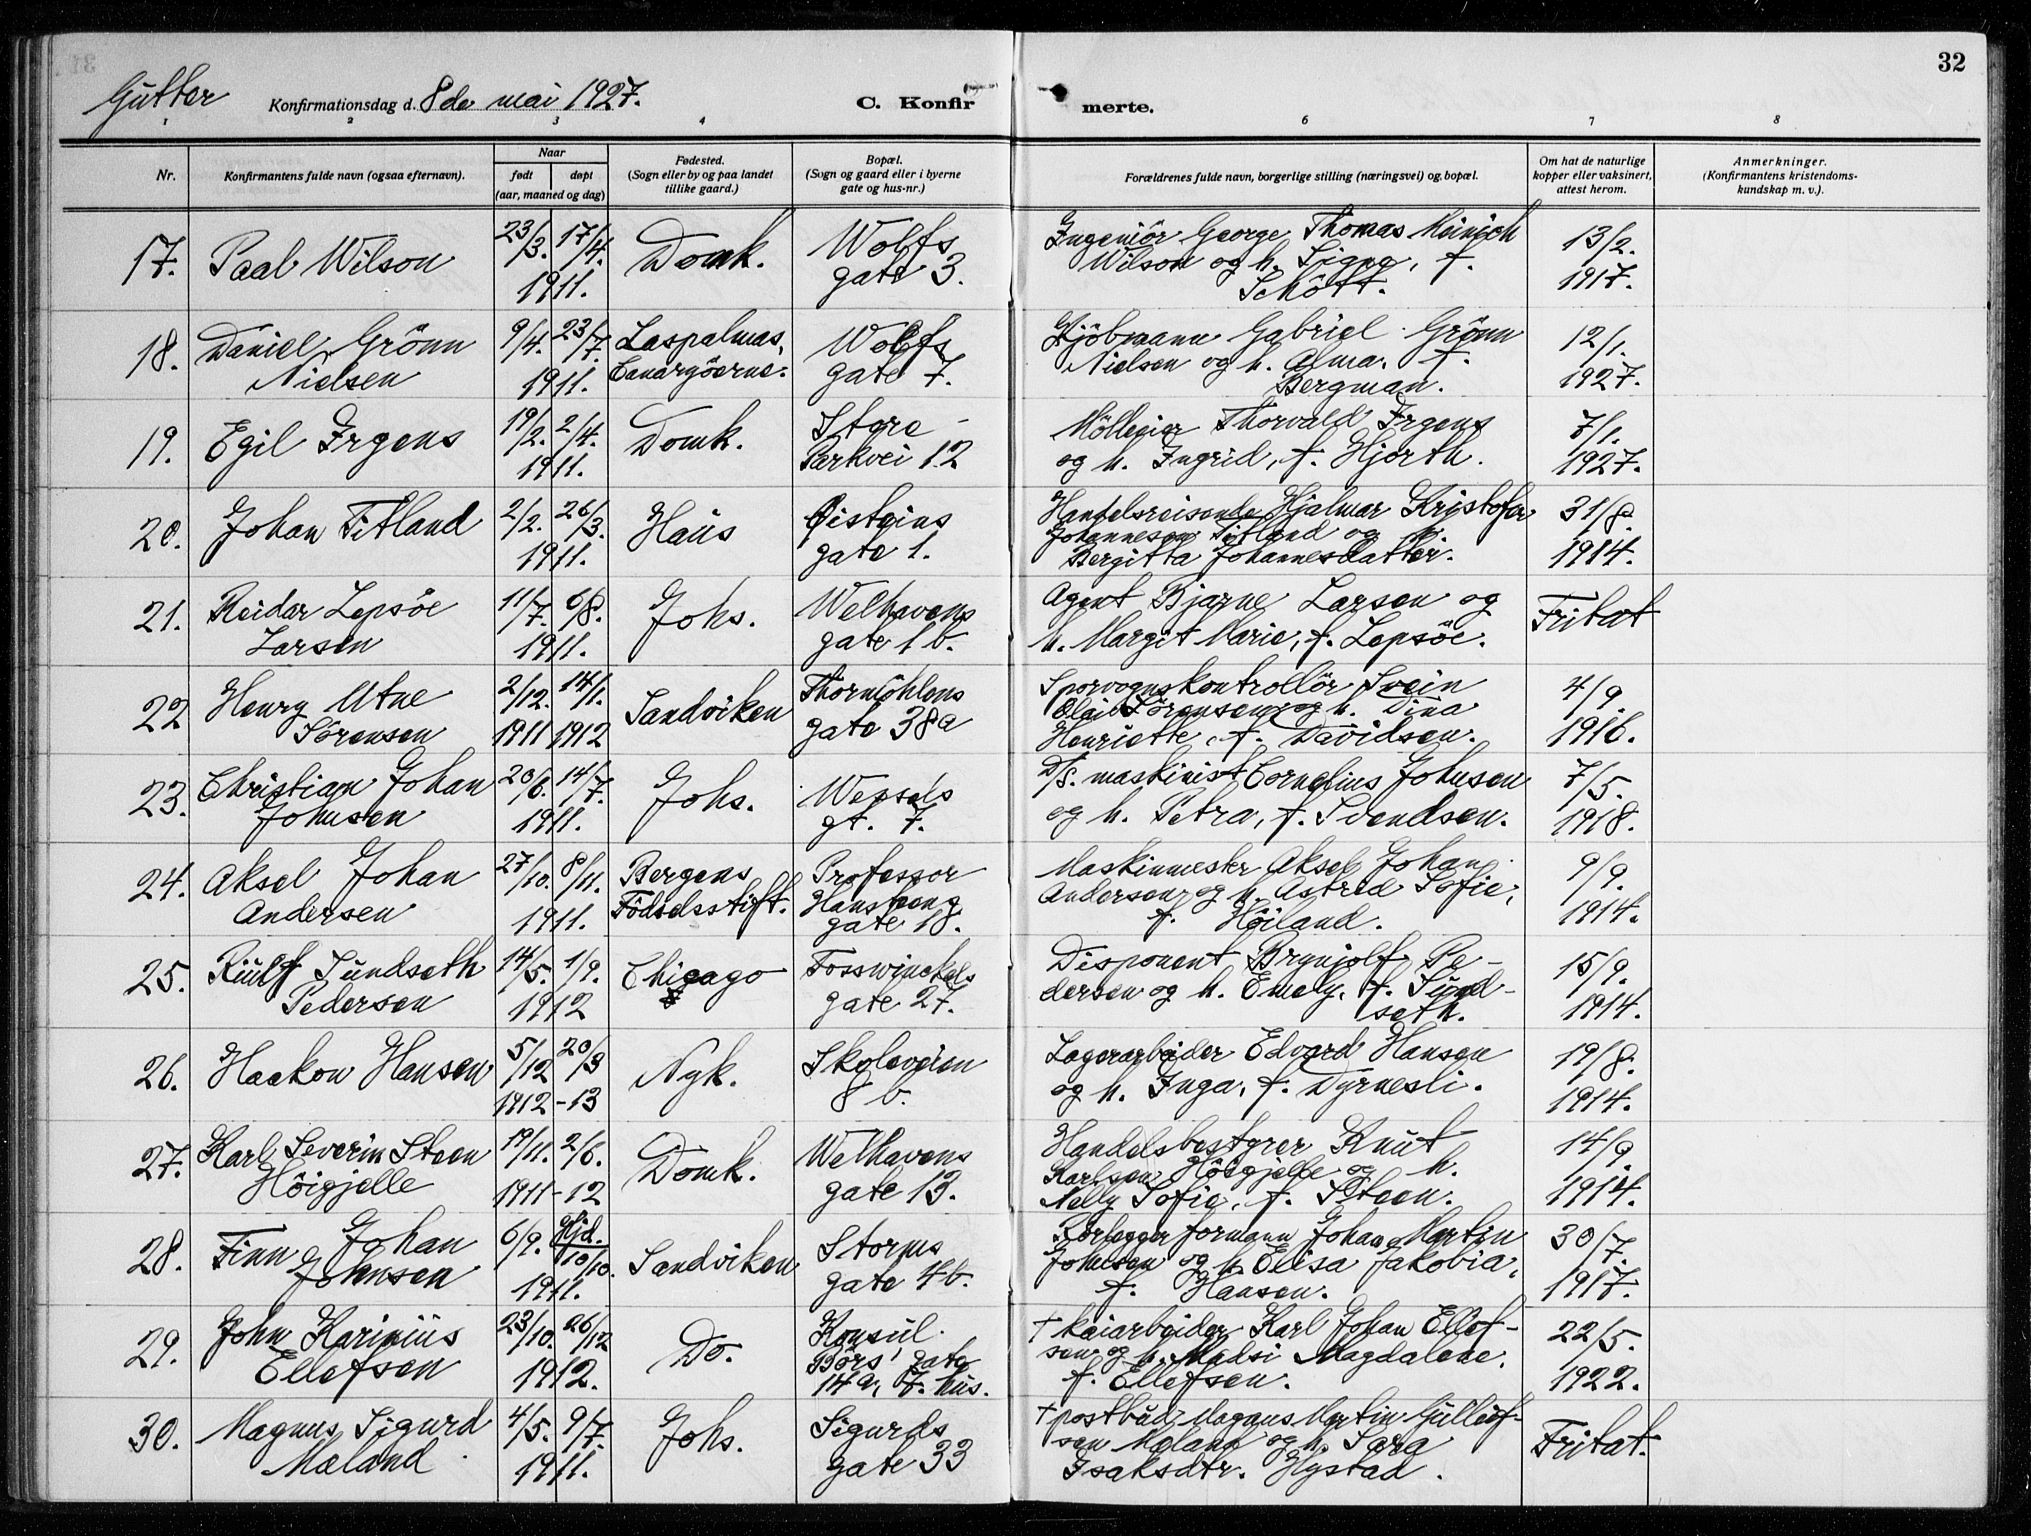 32
Gutter Konfirmationsdag d. 8de mai 1927. C. Konfirmerte.
1 2 3 4 6 7 8
Nr.
Konfirmantens fulde navn (ogsaa efternavn).
Naar
født døpt
(aar, maaned og dag)
Fødested.
(Sogn eller by og paa landet
tillike gaard.)
Bopæl.
(Sogn og gaard eller i byerne
gate og hus-nr.)
Forældrenes fulde navn, borgerlige stilling (næringsvei) og bopæl.
Om hat de naturlige
kopper eller vaksinert,
attest herom.
Anmerkninger.
(Konfirmantens kristendoms-
kundskap m. v.).
17. Paal Wilson
23/3. 17/4.
1911.
Domk.
Wolffs
gate 3.
Ingeniör George Thomas Meinich
Wilson og h. Signe, f.
Schött.
13/2.
1917.
18. Daniel Grönn
Nielsen
9/4. 23/7.
1911.
Laspalmas,
Canaryöerne.
Wolffs
gate 7.
Kjöbmann Gabriel Grönn
Nielsen og h. Alma, f.
Bergman.
12/1.
1927.
19. Egil Irgens
19/2. 2/4.
1911.
Domk.
Store
Parkvei 12
Mölleeier Thorvald Irgens
og h. Ingrid, f. Hjorth.
7/1.
1927.
20. Johan Titland
2/2. 26/3.
1911.
Haus
Öisteins
gate 1.
Handelsreisende Hjalmar Kristofer
Johannesen Titland og h.
Bergitta Johannesdatter.
31/8.
1914.
21. Reidar Lepsöe
Larsen
11/7. 6/8.
1911.
Johs.
Welhavens
gate 1 b.
Agent Bjarne Larsen og
h. Margit Marie, f. Lepsöe.
Fritat
22 Henry Utne
Sörensen
2/12. 14/1.
1911 1912
Sandviken
Thormöhlens
gate 38a
Sporvognskontrollör Svein
Olai Sörensen og h. Dina
Henriette, f. Davidsen.
4/9.
1916.
23. Christian Johan
Johnsen
20/6. 14/7.
1911.
Johs.
Wessels
gt. 7.
D/S. maskinist Cornelius Johnsen
og h. Petra, f. Svendsen.
7/5.
1918.
24. Aksel Johan
Andersen
27/10. 8/11.
1911.
Bergens
Födselsstift.
Professor
Hansteens
gate 18.
Maskinmester Aksel Johan
Andersen og h. Astrid Sofie,
f. Höiland.
9/9.
1914.
25. Sundseth
Pedersen
14/5. 1/9.
1912
Chicago
Fosswinckels
gate 27.
Disponent Brynjolf Pe-
dersen og h. Emely, f. Sund-
seth.
15/9.
1914.
26. Haakon Hansen
5/12 20/3
1912-13
Nyk.
Skoleveien
8 b.
Lagerarbeider Edvard Hansen
og h. Inga, f. Dyrnesli.
19/8.
1914.
27. Karl Severin Steen
Höigjelle
19/11. 2/6.
1911-12
Domk.
Welhavens
gate 13.
Handelsbestyrer Knut
Karlsen Höigjelle og h.
Nelly Sofie, f. Steen.
14/9.
1914.
28. Finn Johan
Johnsen
6/9. Hjd. 10/10.
1911.
Sandviken
Storms
gate 4b.
Rörlegger formann Johan Martin
Johnsen og h. Elisa Jakobia,
f. Hansen.
30/7.
1917.
29. John Karinius
Ellefsen
23/10. 26/12
1912.
Do.
Konsul
Börs' gate
14a, 7. hus.
† kaiarbeider Karl Johan Ellef-
sen og h. Madsi Magdalene,
f. Ellefsen.
22/5.
1922.
30. Magnus Sigurd
Mæland
4/5. 9/7.
1911.
Johs.
Sigurds
gate 33
† postbud Magnus Martin Gulleif-
sen Mæland og h. Sara
Isaksdtr. Hystad.
Fritat.